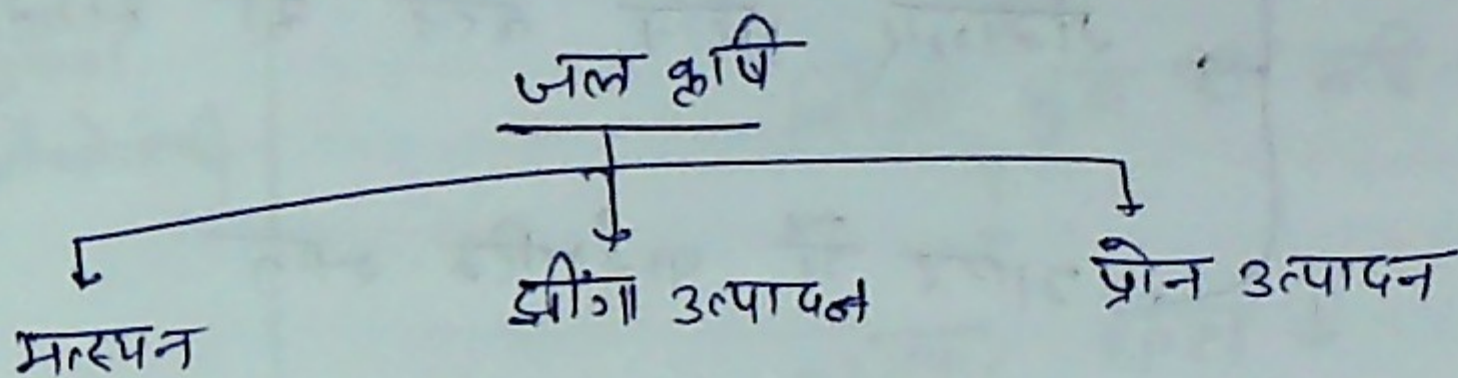 जल कृषि
मत्स्यन
झींगा उत्पादन
प्रोन उत्पादन